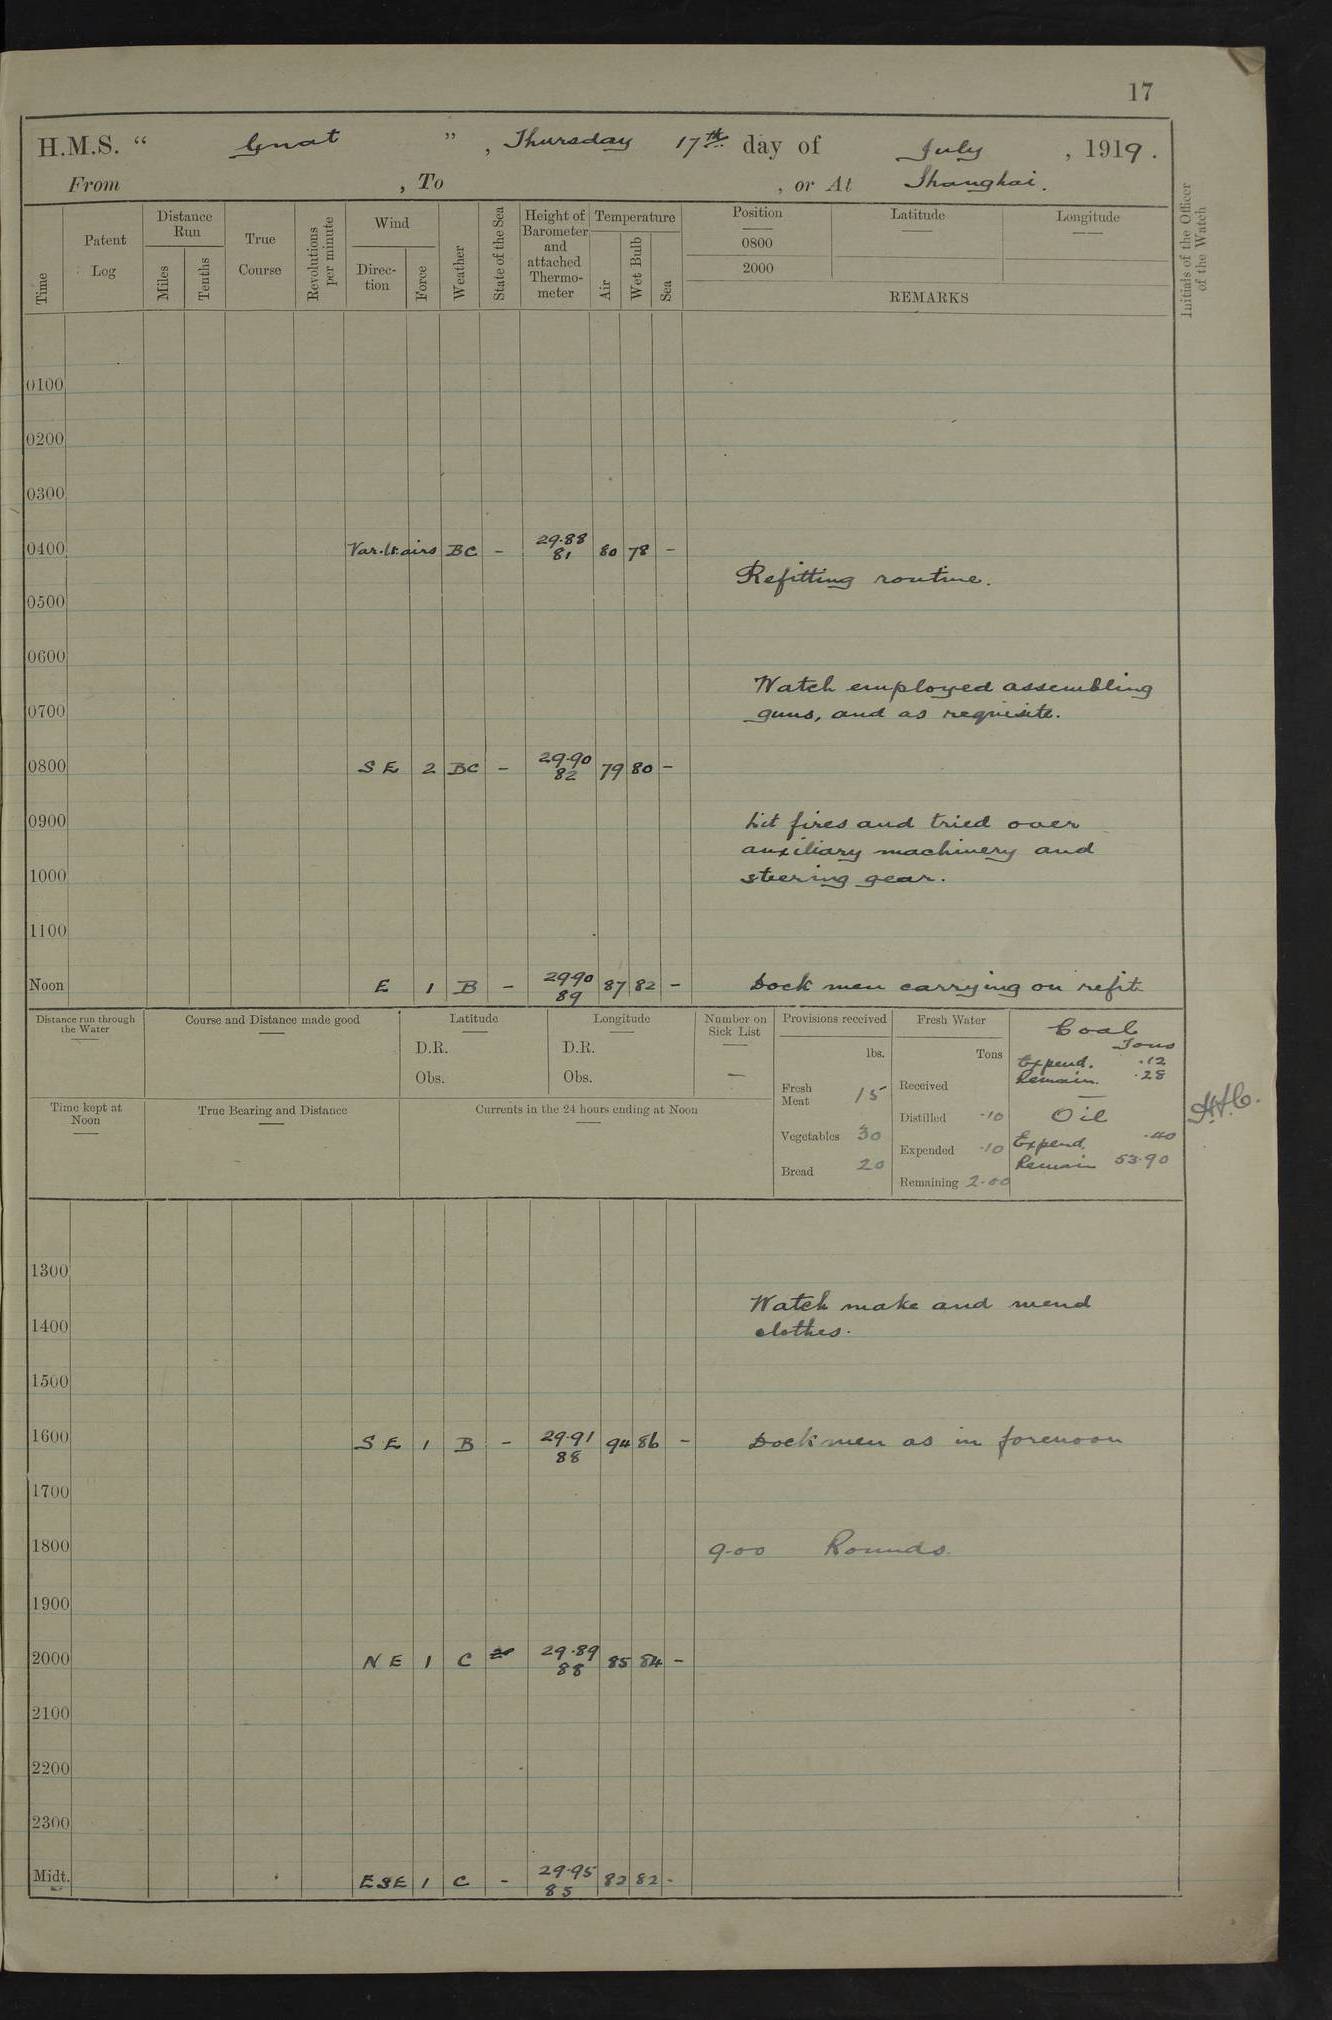 17
H.M.S. “ Gnat ” , Thursday 17th day of July , 1919 .
From , To , or At Shanghai.
Time
Patent Log
Distance Run
Miles
Tenths
True Course
Revolutions per minute
Wind
Direc-tion
Force
Weather
State of the Sea
Height of Barometer and attached Thermo-meter
Temperature
Air
Wet Bulb
Sea
Position
0800
2000
Latitude
Longitude
REMARKS
Initials of the Officer of the Watch
0100
0200
0300
0400 Var. lt. airs BC - 29.88 81 80 78 -
Refitting routine.
0500
0600
Watch employed assembling
0700 guns, and as requisite.
0800 S E 2 BC - 29.90 82 79 80 -
0900 Lit fires and tried over
auxiliary machinery and
1000 steering gear.
1100
Noon E 1 B - 29.90 89 87 82 - Dock men carrying on refit
Distance run through the Water
Course and Distance made good
Latitude
D.R.
Obs.
Longitude
D.R.
Obs.
Number on Sick List
-
Provisions received
lbs.
Fresh Meat 15
Vegetables 30
Bread 20
Fresh Water
Tons
Received
Distilled .10
Expended .10
Remaining 2.00
Coal
Tons
Expend. .12
Remain. .28
Oil
Expend. .40
Remain 53.90
Time kept at Noon
True Bearing and Distance
Currents in the 24 hours ending at Noon
1300
Watch make and mend
1400 clothes.
1500
1600 S E 1 B - 29.91 88 94 86 - Dock men as in forenoon
1700
1800 9.00 Rounds.
1900
2000 N E 1 C 29.89 88 85 84 -
2100
2200
2300
Midt. ESE 1 C - 29.95 85 82 82 -